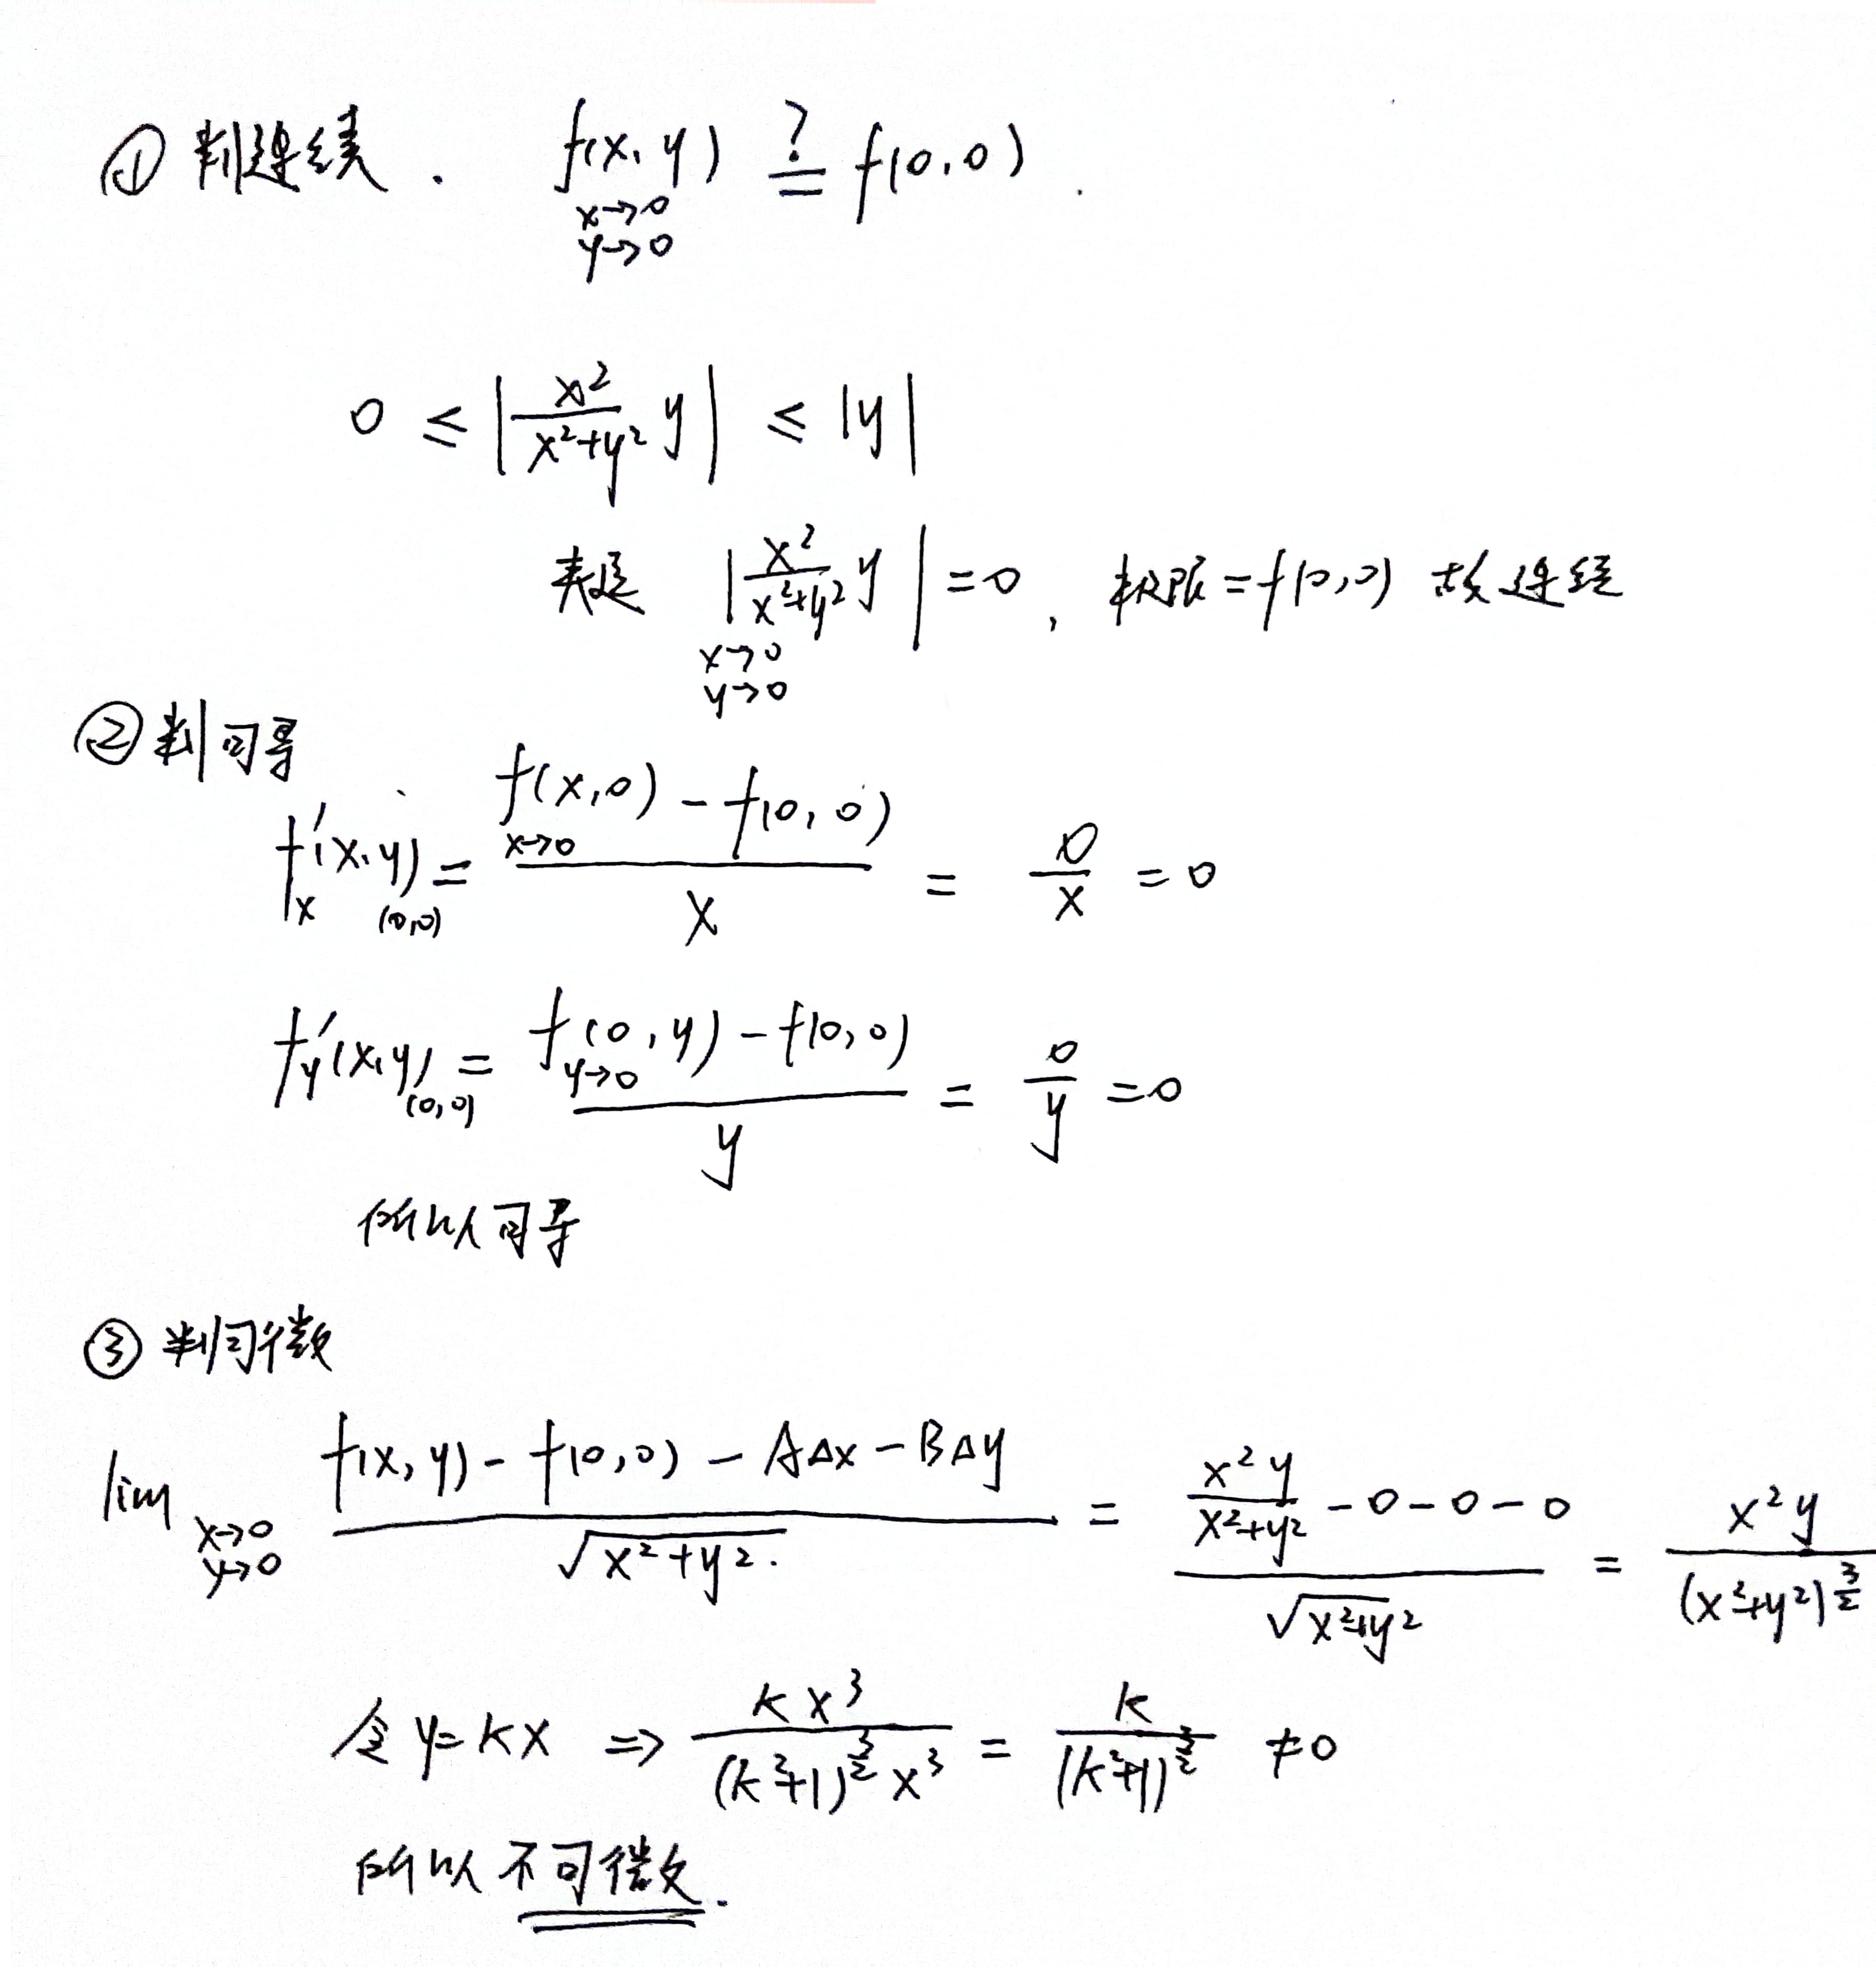 ① 判连续. f(x,y) ≟ f(0,0).
x→0
y→0
0 ≤ |x²/(x²+y²) y| ≤ |y|
|x²/(x²+y²) y| = 0, 极限 = f(0,0) 故连续
x→0
y→0
② 判可导
f'x(x,y)(0,0) = (f(x,0) - f(0,0))/x = 0/x = 0
x→0
f'y(x,y)(0,0) = (f(0,y) - f(0,0))/y = 0/y = 0
y→0
所以可导
③ 判可微
lim x→0 y→0 (f(x,y) - f(0,0) - AΔx - BΔy)/√(x²+y²) = (x²y/(x²+y²) - 0 - 0 - 0)/√(x²+y²) = x²y/(x²+y²)^(3/2)
令 y=kx ⇒ kx³/((k²+1)^(3/2) x³) = k/(k²+1)^(3/2) ≠ 0
所以不可微.